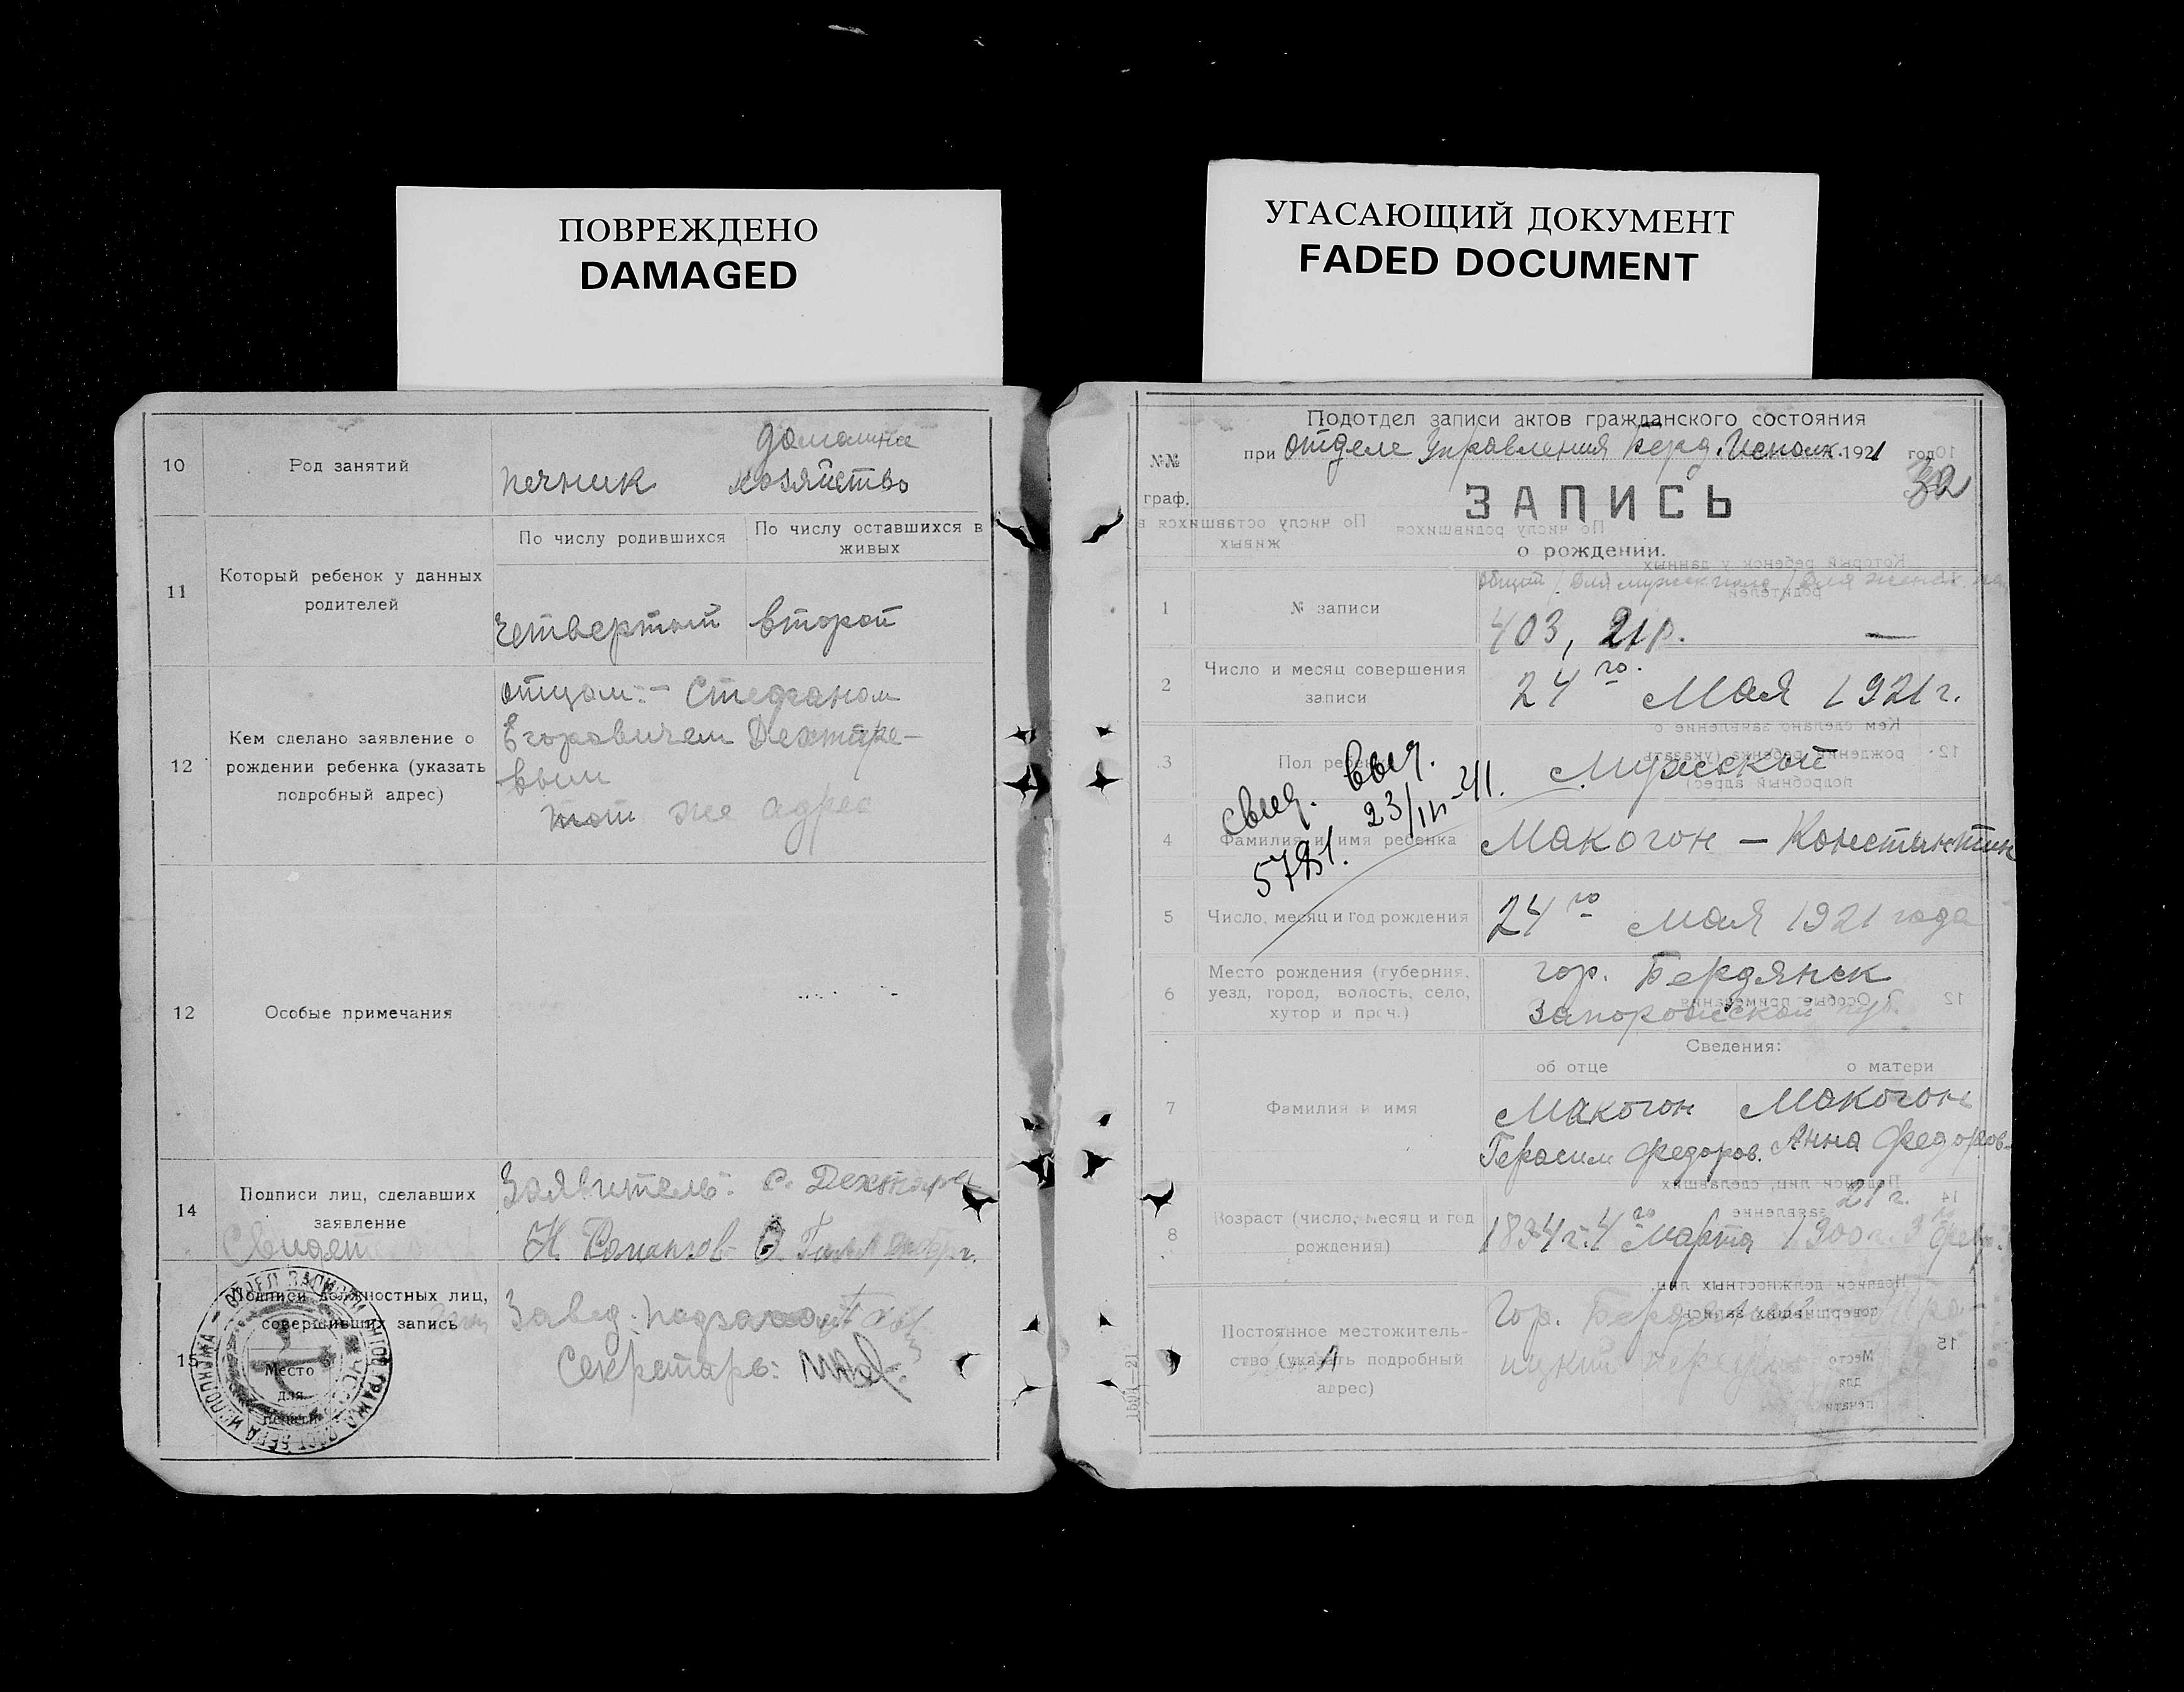 ПОВРЕЖДЕНО
DAMAGED
10
Род занятий
печник
домашнее
хозяйство
11
Который ребенок у данных
родителей
По числу родившихся
По числу оставшихся в
живых
Четвертый
второй
12
Кем сделано заявление о
рождении ребенка (указать
подробный адрес)
отцом:- Стефаном
Егоровичем Дехтяре-
вым
тот же адрес
12
Особые примечания
14
Подписи лиц, сделавших
заявление
Заявитель: С. Дехтяре
К. Романов
15
Подписи должностных лиц,
совершивших запись
Место
для
печати
Завед.
Секретарь:
УГАСАЮЩИЙ ДОКУМЕНТ
FADED DOCUMENT
№№
граф.
Подотдел записи актов гражданского состояния
при отделе Управления Берд. Исполк. 1921 год
32
ЗАПИСЬ
о рождении.
1
№ записи
общий / для мужск. пола / для женск.
403, 21р. —
2
Число и месяц совершения
записи
24го Мая 1921 г.
3
Пол ребенка
Мужской
свид. выд.
5781. 23/III-41.
4
Фамилия и имя ребенка
Макогон — Константин
5
Число, месяц и год рождения
24го мая 1921 года
6
Место рождения (губерния,
уезд, город, волость, село,
хутор и проч.)
гор. Бердянск
Запорожской губ.
Сведения:
об отце
о матери
7
Фамилия и имя
Макогон
Герасим Федоров.
Макогон
Анна Федоров-
8
Возраст (число, месяц и год
рождения)
4го Марта
21 г.
1900 г. 3
9
Постоянное местожитель-
ство (указать подробный
адрес)
Гор.
1501—21